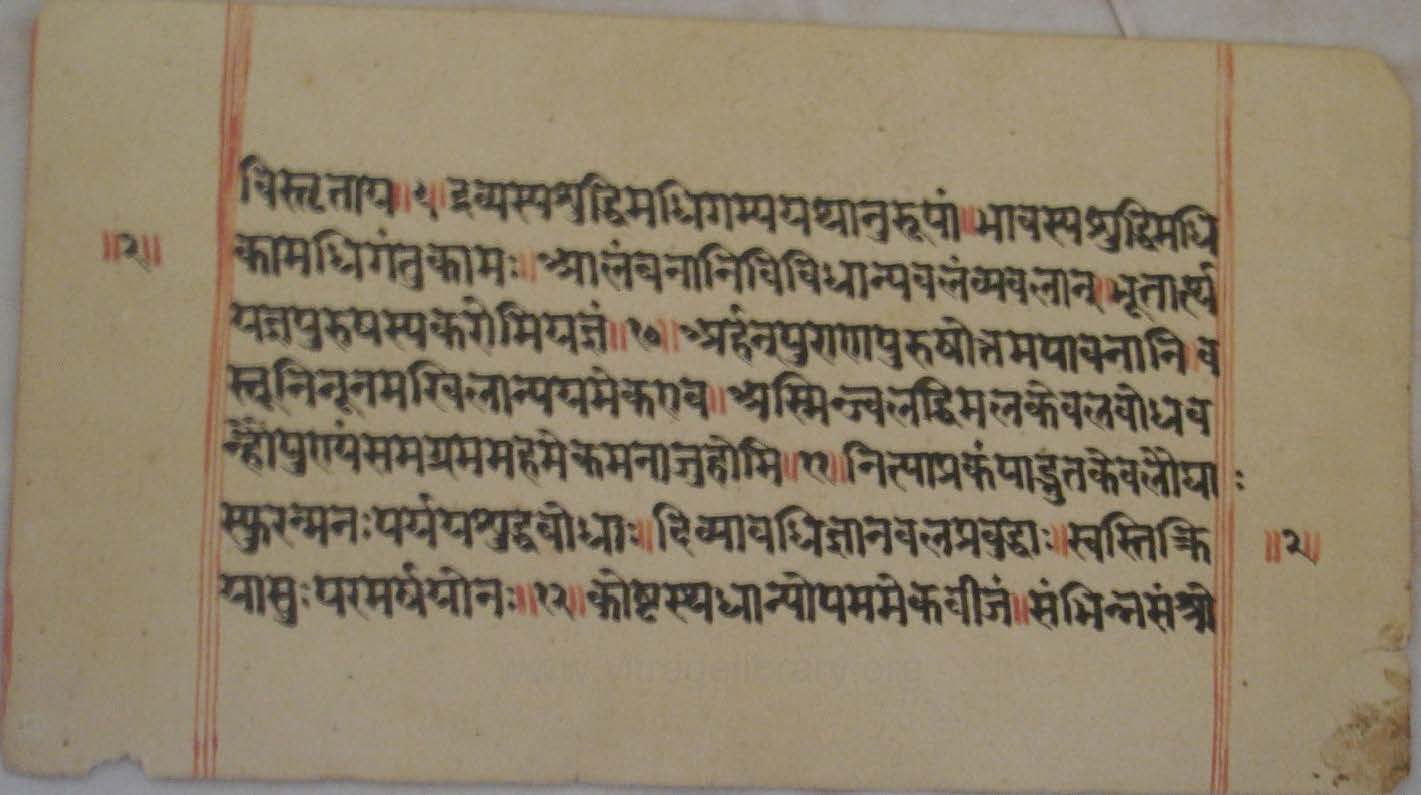 विस्तृताय॥५॥द्रव्यस्यशुद्धिमधिगम्ययथानुरूपां॥भावस्यशुद्धिमधि
॥२॥ कामधिगंतुकामः॥आलंबनानिविविधान्यवलंव्यवलान्॥भूतार्त्थ
यज्ञपुरुषस्यकरोमियज्ञं॥७॥अर्हन्पुराणपुरुषोत्तमपावनानि॥व
स्तूनिनूनमखिलान्ययमेकएव॥अस्मिन्ज्वलद्विमलकेवलवोधव
न्हौपुण्यंसमग्रममहमेकमनाजुहोमि॥९॥नित्याप्रकंपाद्भुतकेवलौघाः
स्फुरन्मनःपर्ययशुद्धवोधाः॥दिव्यावधिज्ञानवलप्रवुद्धाः॥स्वस्तिक्रि ॥२॥
यासुःपरमर्षयोनः॥१२॥कोष्टस्यधान्योपममेकवीजं॥संभिन्नसंश्रो